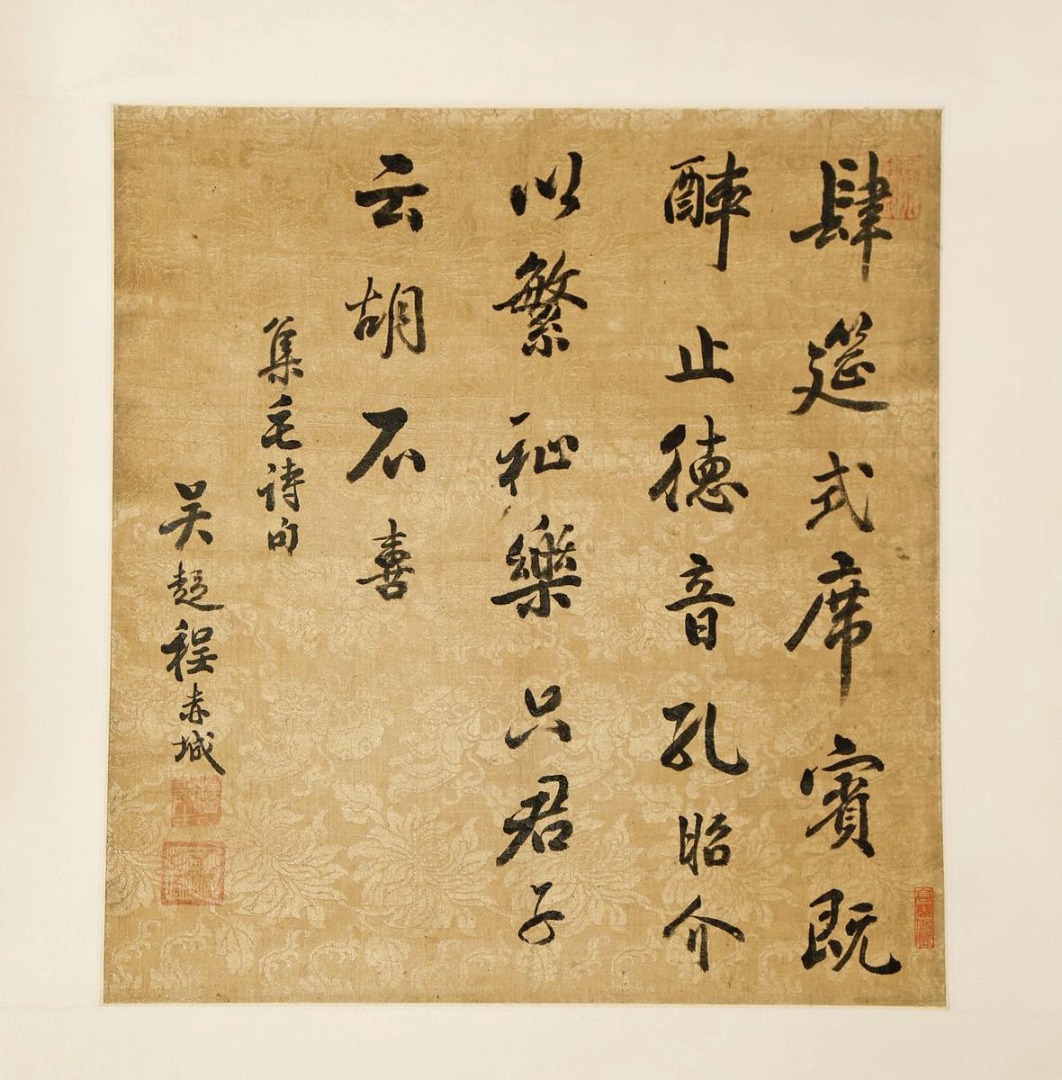 肆筵式席賓既
醉止德音孔昭介
以繁祉樂只君子
云胡不喜
集毛詩句
吴趨程赤城